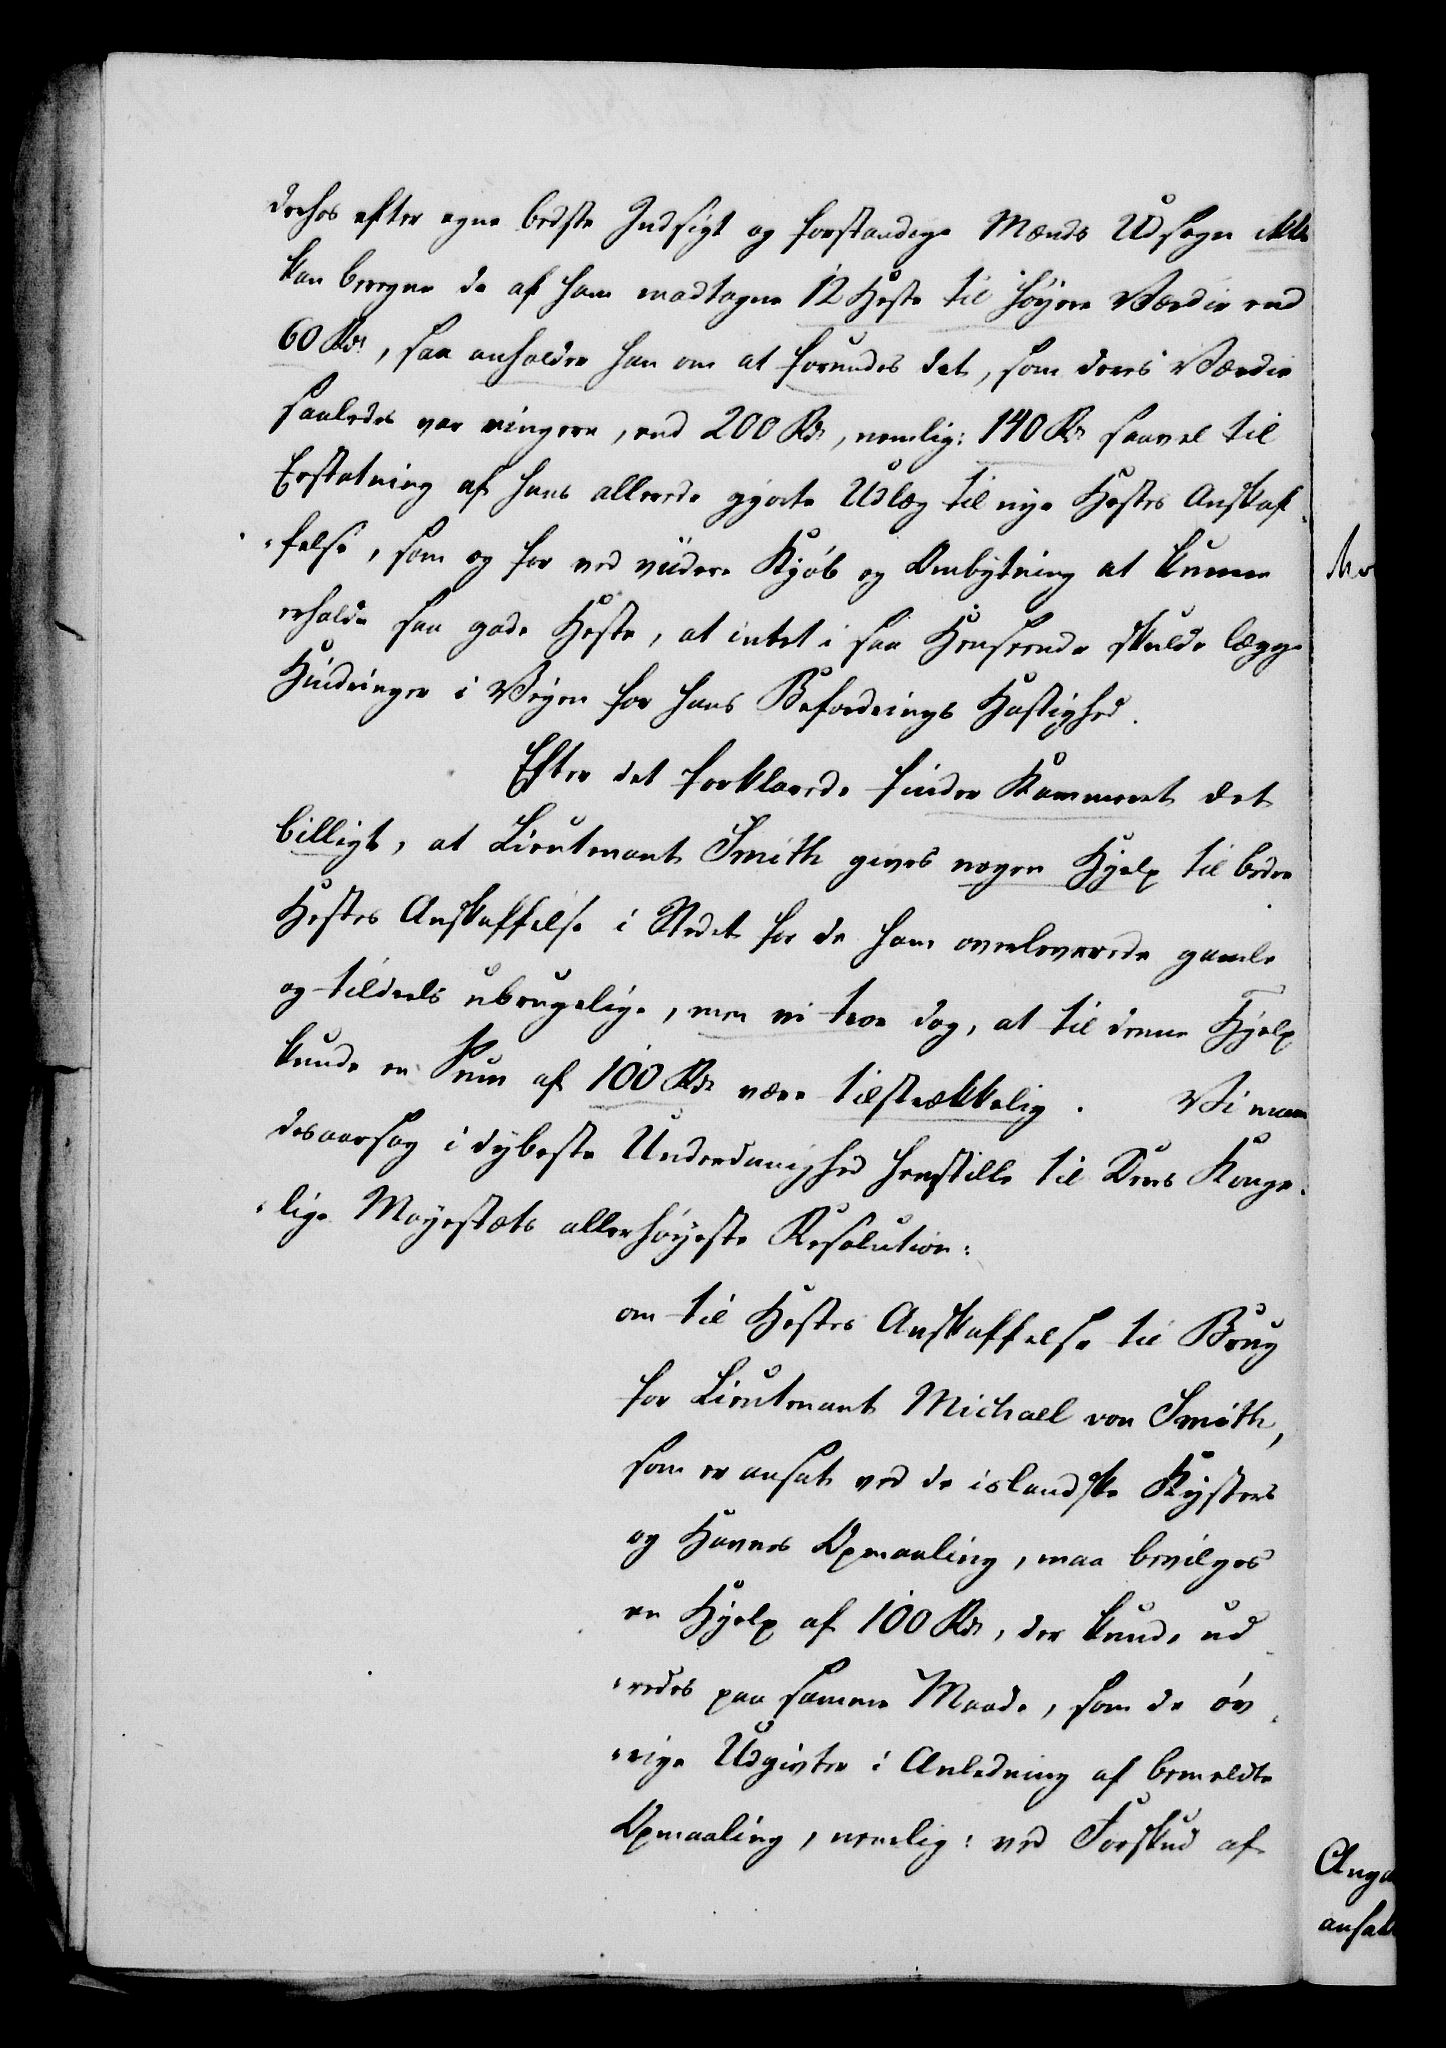 derhos efter egne bedste Indsigt og forstandige Mænds Udsagn ikke
kan beregne de af ham modtagne 12 Heste til høyere Værdie end
60 Rd, saa anholder han om at forundes det, som deres Værdie
saaledes var ringere, end 200 Rd, nemlig: 140 Rd saavel til
Erstatning af hans allerede gjorte Udlæg til nye Hestes Anskaf-
felse, som og for ved viidere Kjøb og Ombytning at kunne
erholde saa gode Heste, at intet i saa Henseende skulde lægge
Hindringer i Veyen for hans Befordrings Hastighed.
Efter det forklarede finder Kammeret det
billigt, at Lieutenant Smith gives nogen Hjelp til bedre
Hestes Anskaffelse i Stedet for de ham overleverede gamle
og tildeels ubrugelige, men vi troe dog, at til denne Hjelp
kunde en Sum af 100 Rd være tilstrækkelig. Vi maae
desaarsag i dybeste Underdanighed henstille til Deres Konge-
lige Mayestæts allerhøyeste Resolution:
om til Hestes Anskaffelse til Brug
for Lieutenant Michael von Smith,
som er ansat ved de islandske Kysters
og Havnes Opmaaling, maa bevilges
en Hjelp af 100 Rd, der kunde ud-
redes paa samme Maade, som de øv-
rige Udgivter i Anledning af bemeldte
Opmaaling, nemlig: ved Forskud af